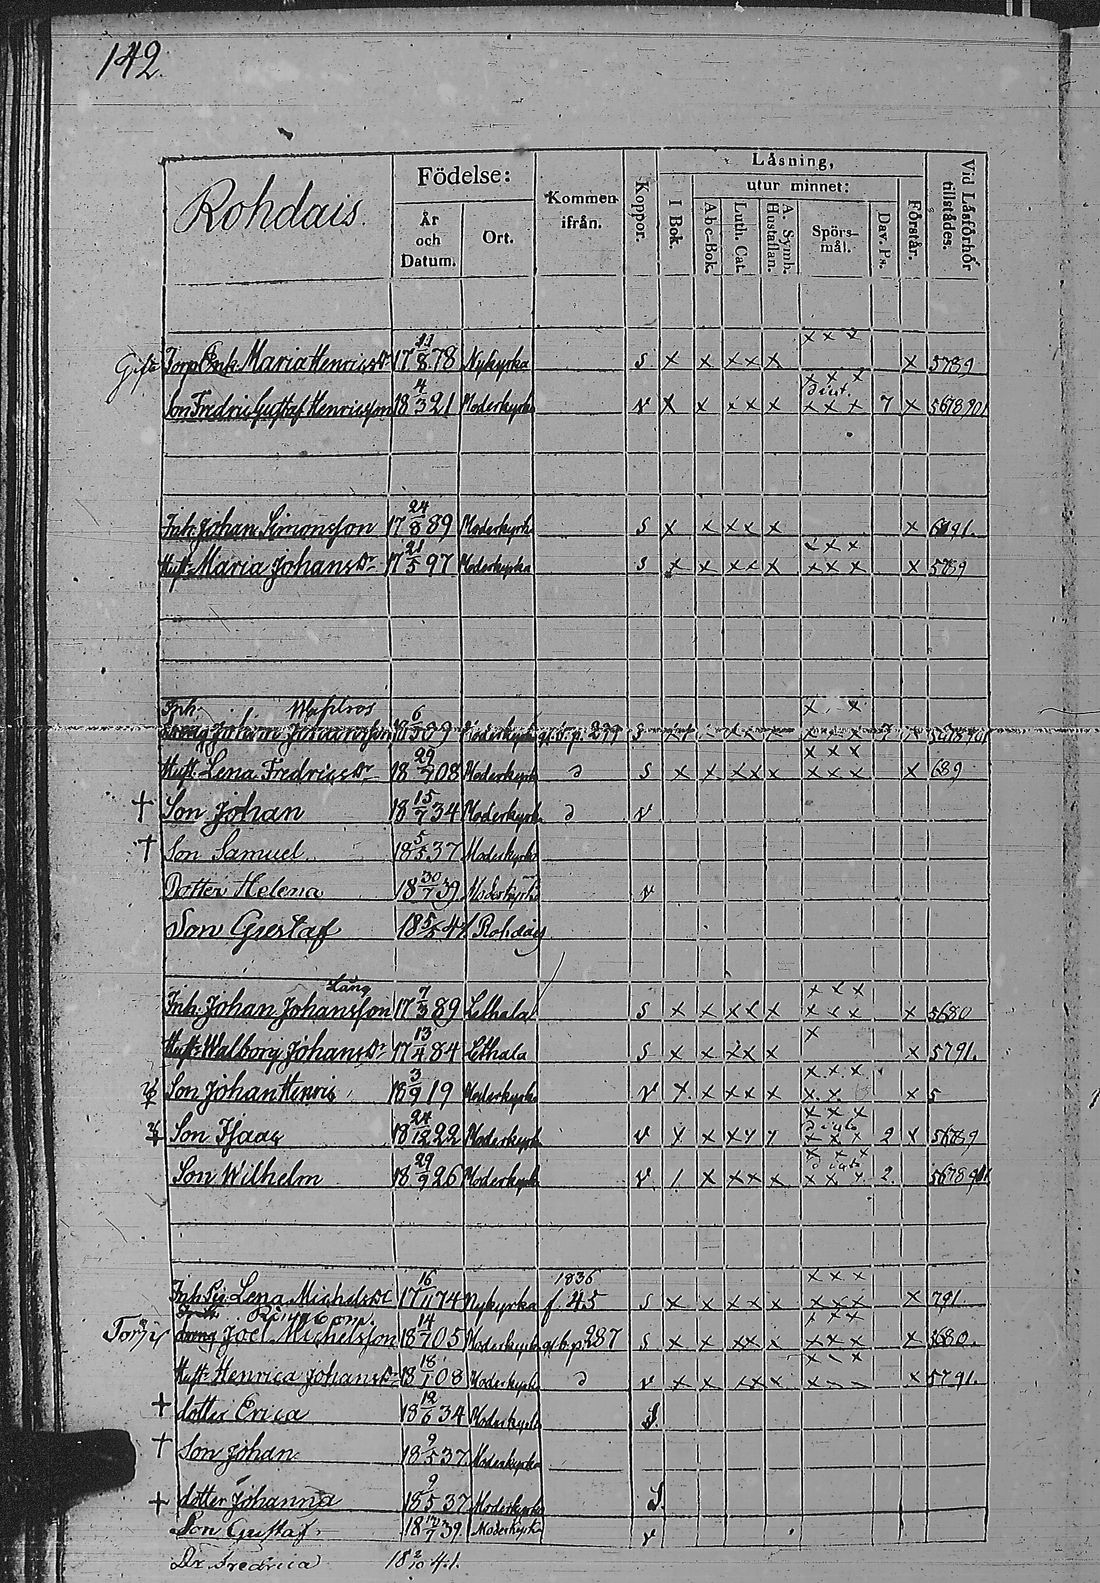 142
Rohdais
Födelse:
År och Datum.
Ort.
Kommen ifrån.
Koppor.
Läsning,
I Bok.
utur minnet:
A-b-c-Bok.
Luth. Cat.
A. Symb. Hustaflan.
Spörsmål.
Dav. Ps.
Förstår.
Vid Läsförhör tillstädes.
x x x
Torp Enk. Maria Henricsdr 17 11/8 78 Nykyrka S x x x x x x 5789
x x x
Son Fredric Gustaf Henricsson 18 4/3 21 Moderkyrka V x x x x x x x x 7 x
Inh. Johan Simonsson 17 24/8 89 Moderkyrk S x x x x x x
x x x
Hust. Maria Johansdr 17 21/5 97 Moderkyrka S x x x x x x x x x 5789
Inh.
Johan 18 6/5 09 p. 299 S
x x x
Hust. Lena Fredricsdr 18 29/7 08 Moderkyrk S x x x x x x x x x 689
† Son Johan 18 15/7 34 Moderkyrk V
† Son Samuel 18 5/5 37 Moderkyrk
Dotter Helena 18 30/7 39 Moderkyrk V
Son Gustaf 18 Rohdais
Lång
x x x
Inh. Johan Johansson 17 7/3 89 Lethala S x x x x x x x x x 5680
x
Hust. Walborg Johansdr 17 13/4 84 Lethala S x x x x x x 5791.
x x x
Son Johan Henric 18 3/9 19 Moderkyrk V x x x x x x x x 5
x x x
Son Isaac 18 24/12 22 Moderkyrk V x x x x x x x x 2 x 56789
x x x
Son Wilhelm 18 29/9 26 Moderkyrk V / x x x x x x x 2
1836
x x x
Inh. Pig. Lena Michelsdr 17 16/11 74 Nykyrka f. 45 S x x x x x x x x x 791
Inh.
x x x
Joel Michelsson 18 14/7 05 Moderkyrk p 287 S x x x x x x x x x
x x x
Hust. Henrica Johansdr 18 18/1 08 Moderkyrk V x x x x x x 5791.
† dotter Erica 18 12/6 34 Moderkyrk S.
† Son Johan 18 9/5 37 Moderkyrka
† dotter Johanna 18 9/5 37 Moderkyrk S.
Son Gustaf 18 39 Moderkyrk V
Dr Fredrica 18 2/10 41.